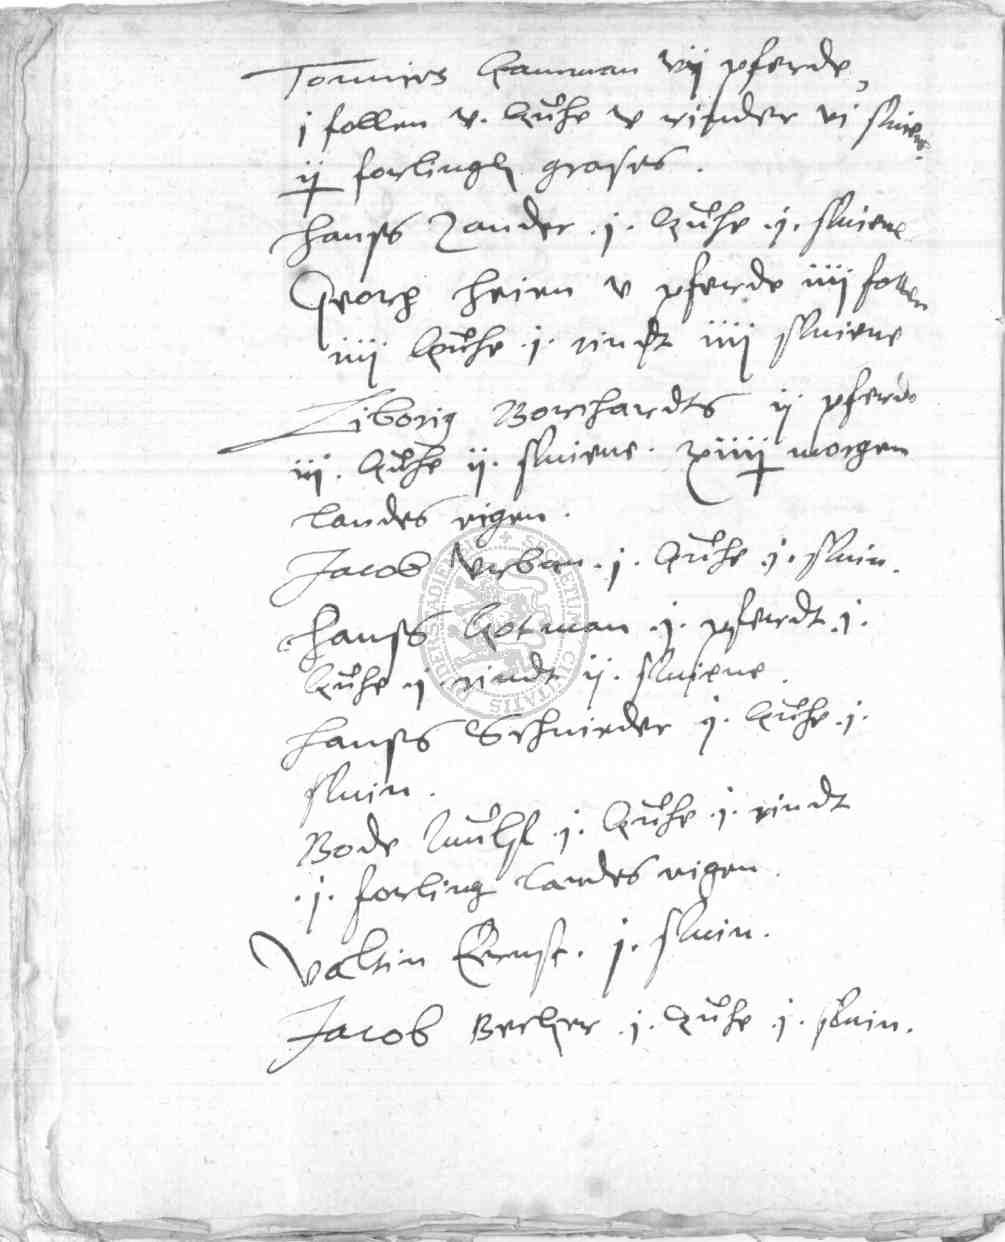 Tonnies Hamman vij pferde
j follen v. kuhe v rinder vj swine
ij forlingh grases.
hanss Zander .j. kuhe .j. swiene
Georg heien v pferde iiij follen
iiij kuhe .j. rindt iiij swiene
Ziborig Borchardts ij pferde
iij. kuhe ij. swiene. xiiij morgen
landes eigen.
Jacob Vrban .j. kuhe .j. swin.
hanss Gotman .j. pferdt .j.
kuhe .j. rindt ij. swiene.
hanss Schnieder j. kuhe .j.
swin.
Bode .j. kuhe .j. rindt
.j. forling landes eigen.
Valtin Ernst. j. swin.
Jacob Becker .j. kuhe .j. swin.
SECRETUM CIVITATIS